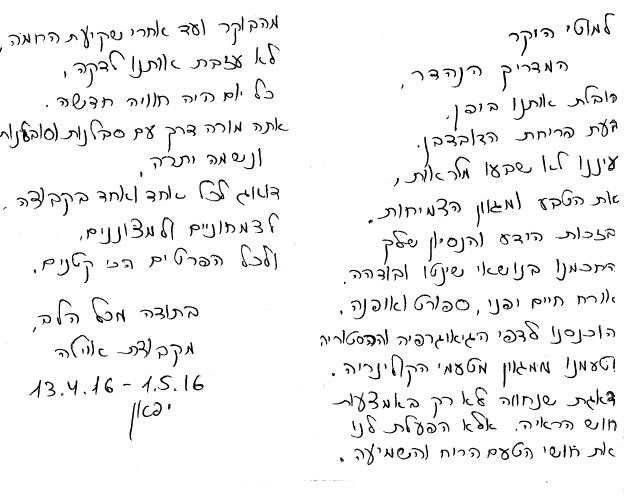 למוטי היקר
המדריך הנהדר,
הובלת אותנו ביפן.
בעת פריחת הדובדבן.
עיננו לא שבעו מלראות,
את הטבע ומגוון הצמיחות.
בזכות הידע והנסיון שלך
החכמנו בנושאי שינטו ובודהה.
אורח חיים יפני, ספורט ואופנה.
הוכנסנו לדפי הגיאוגרפיה וההסטוריה
וטעמנו ממגוון מטעמי הקולינריה.
דאגת שנחווה לא רק באמצעות
חוש הראיה. אלא הפעלת לנו
את חושי הטעם הריח והשמיעה.
מהבוקר ועד אחרי שקיעת החמה,
לא עזבת אותנו לדקה,
כל יום היה חוויה חדשה.
אתה מורה דרך עם סבלנות וסובלנות
ונשמה יתרה,
דואג לכל אחד ואחד בקבוצה,
לצמחונים ולמצוננים,
ולכל הפרטים הכי קטנים.
בתודה מכל הלב,
מקבוצת איילה
13.4.16 - 1.5.16
יפאן